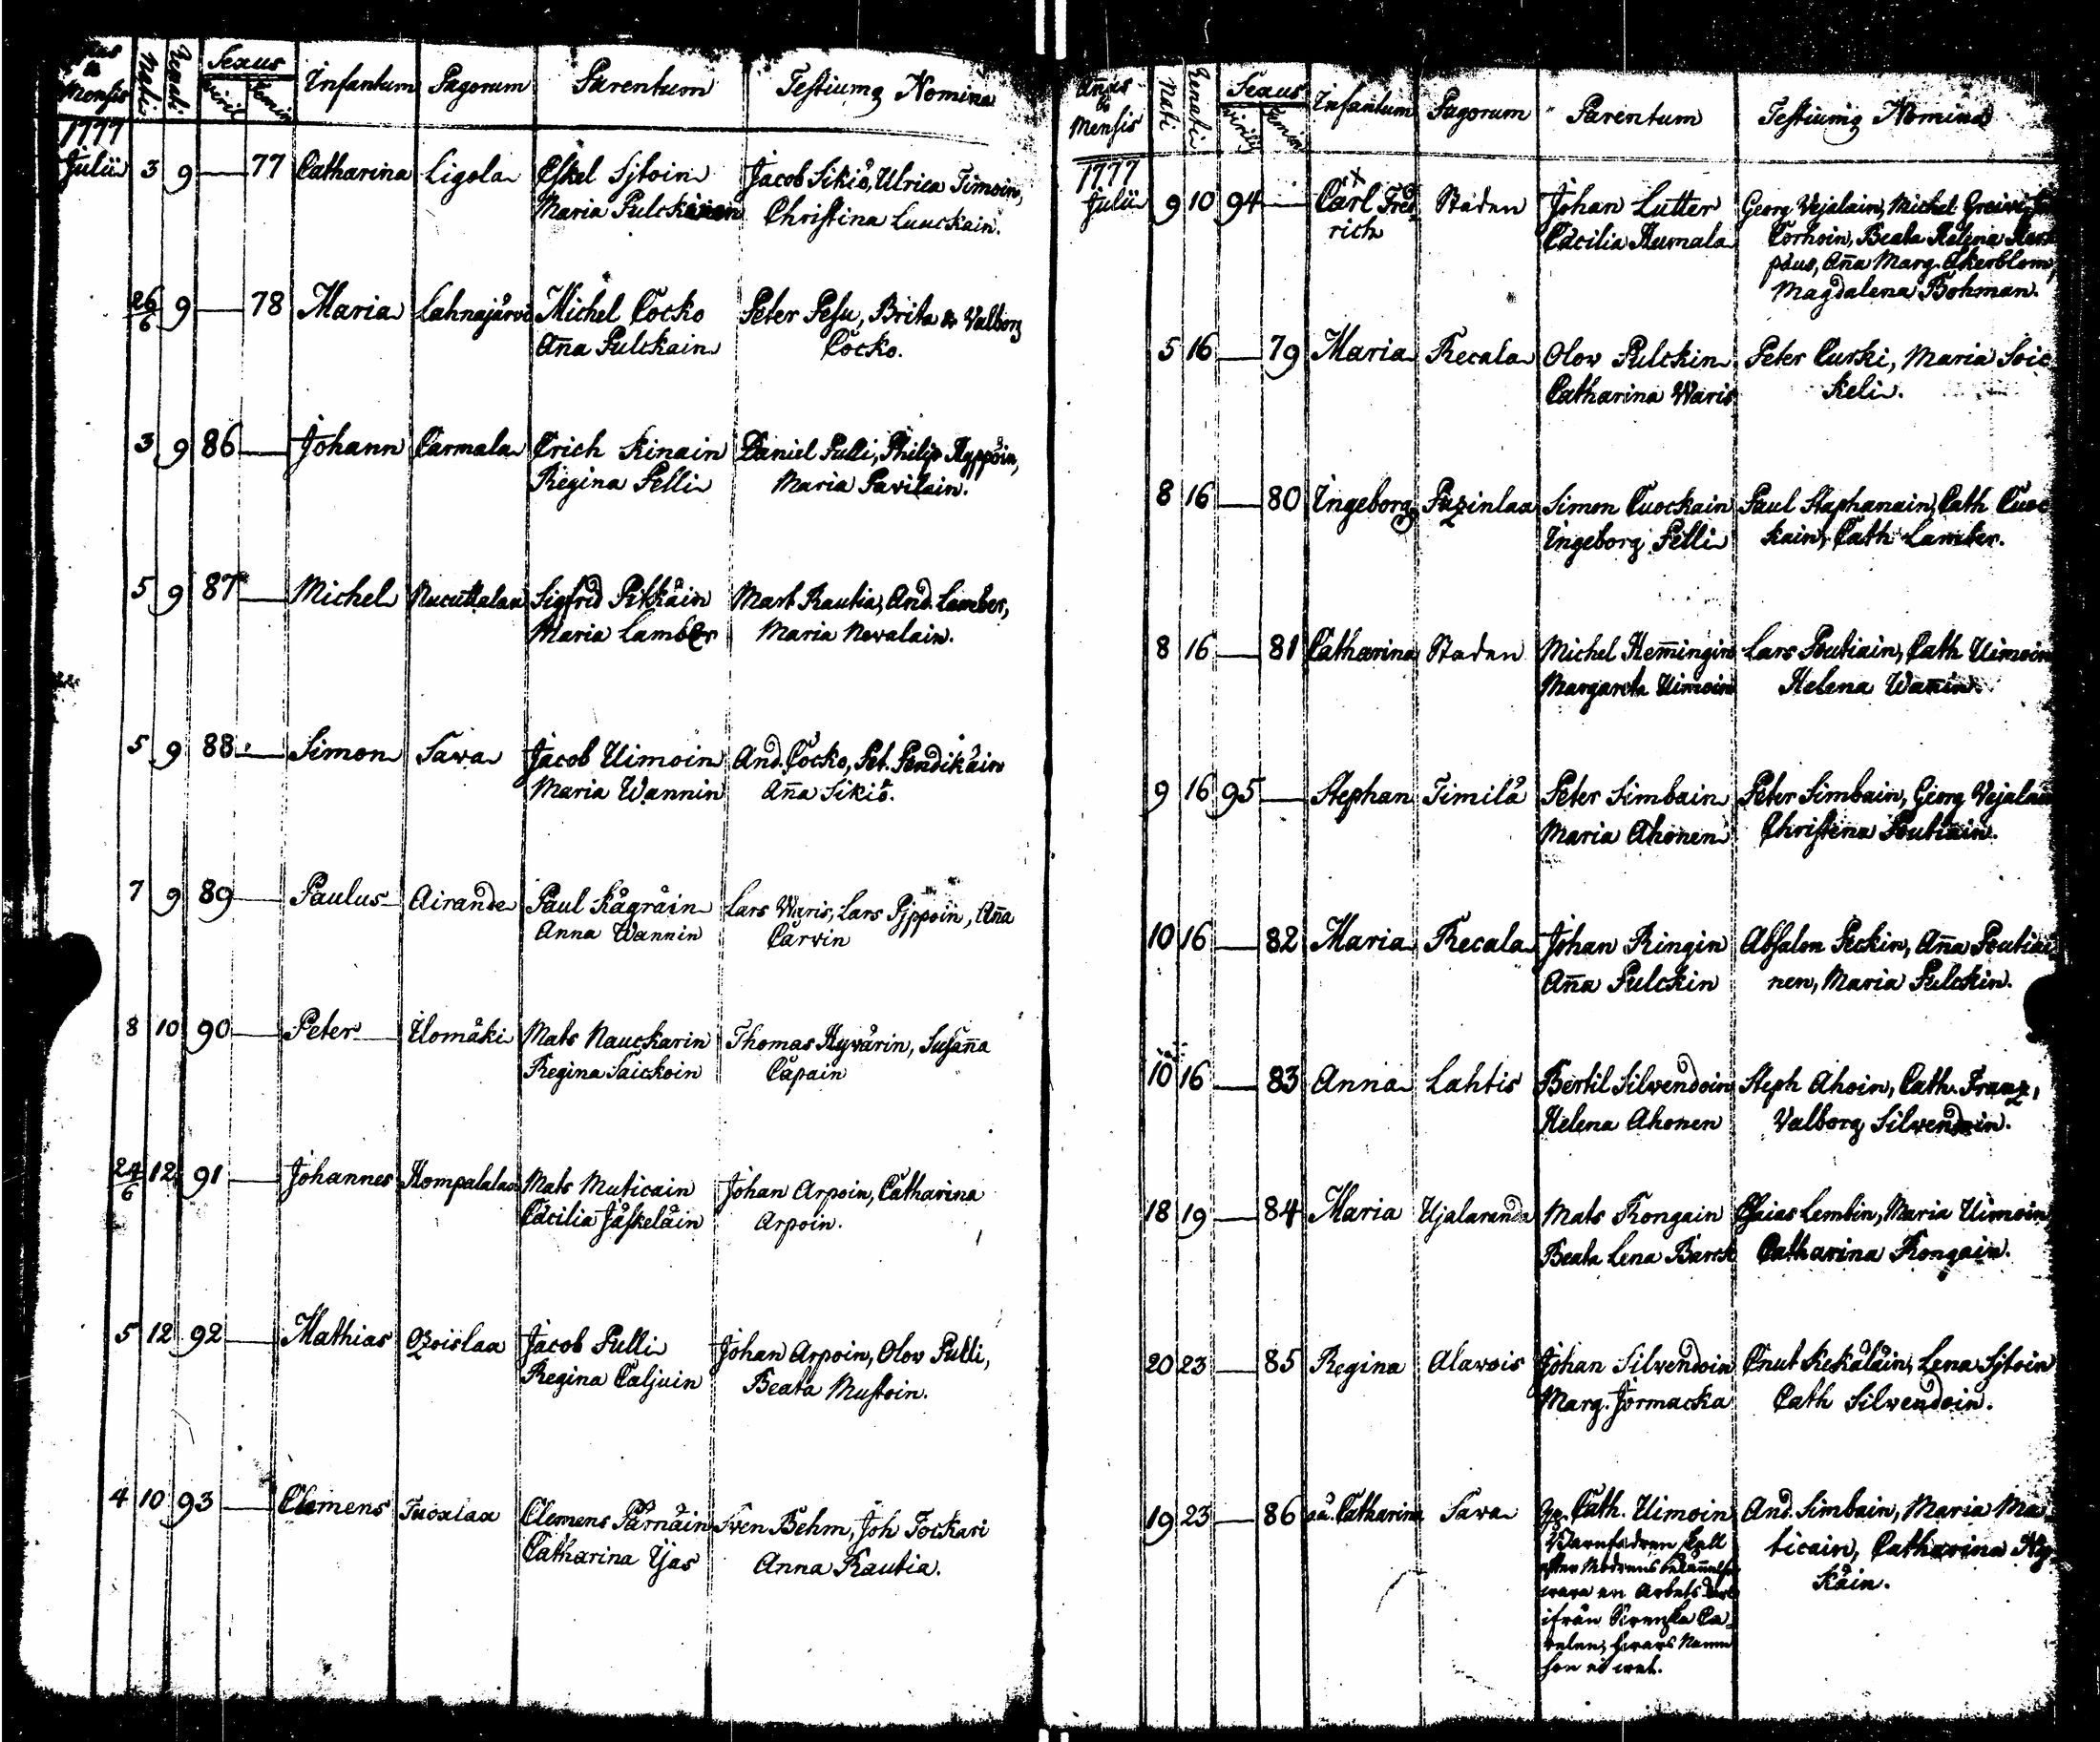 Mensis Nati Renati Sexus Infantum Pagorum Parentum Testiumq Nomina
Viril Femin
1777
Julii 3 9 — 77 Catharina Ligola Eskel Sjtoin Jacob Sikiö, Ulrica Timoin,
Maria Pulckainen Christina Luuckain.
26/6 9 — 78 Maria Lahnajärvi Michel Cocko Peter Pesu, Brita & Valborg
Aña Pulckain Cocko.
3 9 86 — Johann Carmala Erich Kinain Daniel Pulli, Philip Hyppöin,
Regina Pelli Maria Pavilain.
5 9 87 — Michel Nucuttalaa Sigfrid Pitkäin Mart Rautia, And. Lamber,
Maria Lamber Maria Nevalain.
5 9 88 — Simon Sava Jacob Uimoin And. Cocko, Pet. Pendikäin
Maria Wannin Aña Sikiö.
7 9 89 — Paulus Airande Paul Kägräin Lars Waris, Lars Pjppoin, Aña
Anna Wannin Carvin
8 10 90 — Peter Ilomäki Mats Nauckarin Thomas Hyvärin, Susaña
Regina Saickoin Capain
24/6 12 91 — Johannes Hompalalaa Mats Muticain Johan Arpoin, Catharina
Cäcilia Jäskeläin Arpoin.
5 12 92 — Mathias Ozoislaa Jacob Pulli Johan Arpoin, Olov Pulli,
Regina Caljuin Beata Mustoin.
4 10 93 — Clemens Tuoxlaa Clemens Pärnäin Sven Behm, Joh Tockari
Catharina Ijas Anna Rautia.
Añus & Mensis Nati Renati Sexus Infantum Pagorum Parentum Testiumq Nomina
Virilis Femin
1777
Julii 9 10 94 — Carl Fred Staden Johan Lutter Georg Vejalain, Michel
rich Cäcilia Humala Corhoin, Beata Helena
päus, Aña Marg. Åkerblom,
Magdalena Bohman.
5 16 — 79 Maria Recala Olov Pulckin Peter Curki, Maria Soic
Catharina Waris keli.
8 16 — 80 Ingeborg Puzinlaa Simon Cuockain Paul Staphanain, Cath Cuoc
Ingeborg Pelli kain, Cath Lamber.
8 16 — 81 Catharina Staden Michel Hem̃ingin Lars Poutiain, Cath Uimoin
Margareta Uimoin Helena Wanin.
9 16 95 — Stephan Timilä Peter Simbain Peter Simbain, Georg Vejalain
Maria Ahonen Christina Poutiain.
10 16 — 82 Maria Recala Johan Ringin Absalon Peckin, Aña Poutiai
Aña Pulckin nen, Maria Pulckin.
10 16 — 83 Anna Lahtis Bertil Silvendoin Steph Ahoin, Cath. Franz,
Helena Ahonen Valborg Silvendoin.
18 19 — 84 Maria Ujalaranda Mats Rongain Esaias Lembin, Maria Uimoin,
Beata Lena Barck Catharina Rongain.
20 23 — 85 Regina Alavois Johan Silvendoin Cnut Kekäläin, Lena Sjtoin
Marg. Jormacka Cath Silvendoin.
19 23 — 86 oä. Catharina Sava Cath. Uimoin And. Simbain, Maria Mu
Barnfadren skall ticain, Catharina Hy
efter Modrens bekännelse käin.
vara en Arbets karl
ifrån Svenska Ca
relen, hvars Namn
hon ei vet.